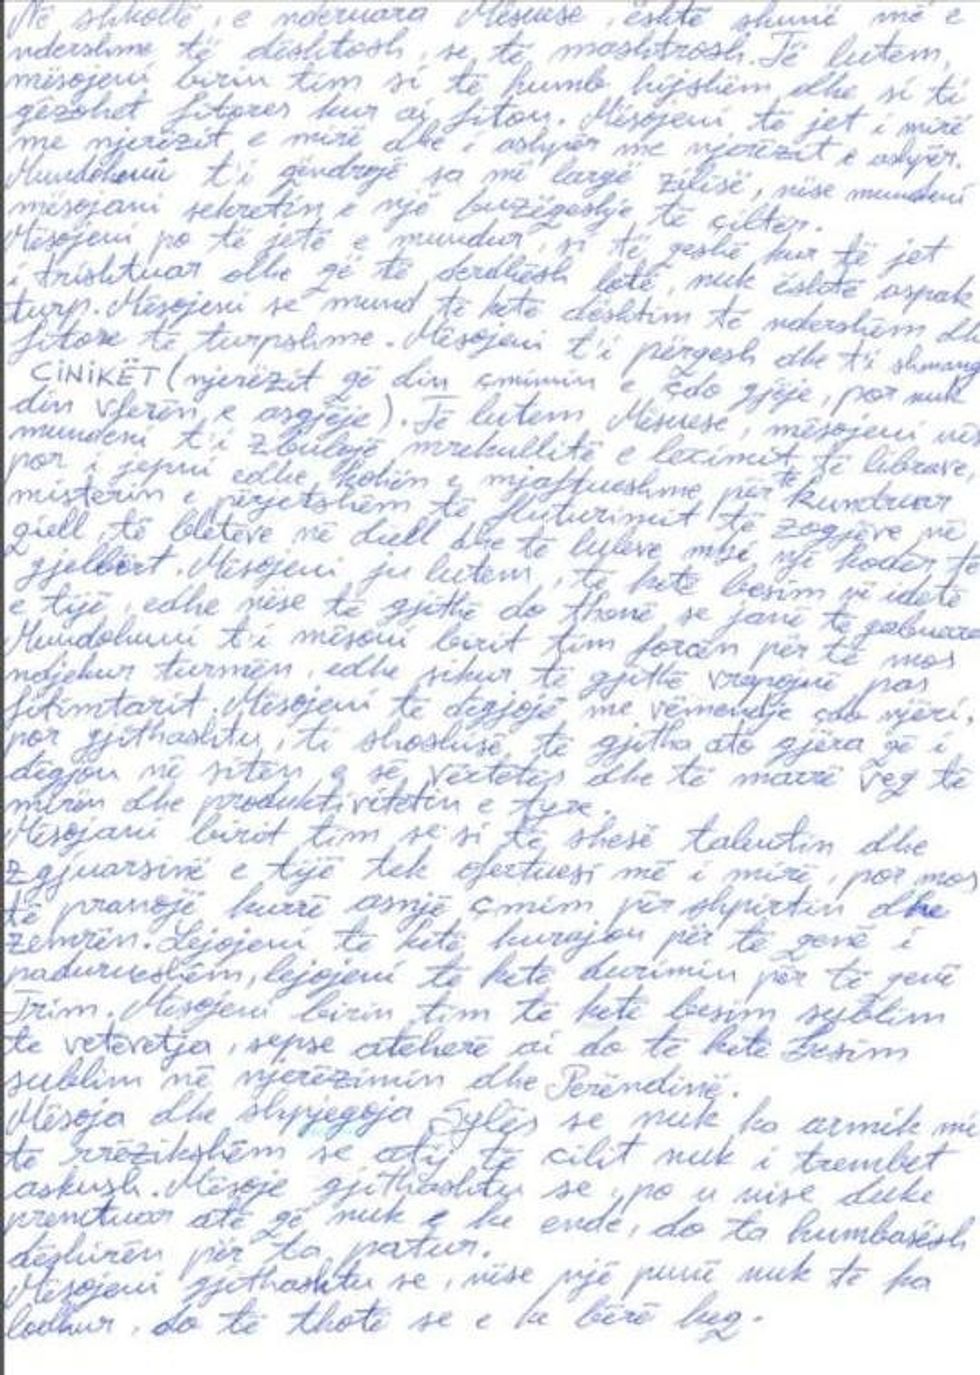 Në shkollë, e nderuara Mësuese, është shumë më e
ndershme të dështosh, se të mashtrosh. Të lutem,
mësojeni birin tim si të humb hijshëm dhe si ti
gëzohet fitores kur ai fiton. Mësojeni të jet i mirë
me njerëzit e mirë dhe i ashpër me njerëzit e ashpër.
Mundohuni t'i qëndrojë sa më largë zilisë, nëse mundeni
mësojani sekretin e një buzëqeshje të çiltër.
Mësojeni po të jetë e mundur, si të qeshë kur të jet
i trishtuar dhe që të derdhësh lotë, nuk është aspak
turp. Mësojeni se mund të ketë dështim të ndershëm dhe
fitore të turpshme. Mësojeni t'i përqesh dhe t'i shmang
CINIKËT (njerëzit që din çmimin e çdo gjëje, por nuk
din vlerën e asgjëje). Të lutem, Mësuese, mësojeni në
mundeni t'i zbulojë mrekullitë e leximit të librave,
por i jepni edhe kohën e mjaftueshme për të kundruar
misterin e përjetshëm të fluturimit të zogjëve në
qiell, të bletëve në diell dhe të luleve mbi një kodër të
gjelbërt. Mësojeni ju lutem, të ketë besim në idetë
e tijë, edhe nëse të gjithë do thonë se janë të gabuara
Mundohuni t'i mësoni birit tim forcën për të mos
ndjekur turmën, edhe sikur të gjithë vrapojnë pas
fitimtarit. Mësojeni të dëgjojë me vëmendje çdo njëri,
por gjithashtu, ti shoshisë të gjitha ato gjëra që i
dëgjon në sitën e së vërtetës dhe të marrë veq të
mirën dhe produktivitetin e tyre.
Mësojani birit tim se si të shesë talentin dhe
zgjuarsinë e tijë tek ofertuesi më i mirë, por mos
të pranojë kurrë asnjë çmim për shpirtin dhe
zemrën. Lejojeni të ketë kurajon për të qenë i
padurueshëm, lejojeni të ketë durimin për të qenë
Trim. Mësojeni birin tim të ketë besim sublim
te vetëvetja, sepse atëherë ai do të ketë besim
sublim në njerëzimin dhe Perëndinë.
Mësoja dhe shpjegoja Sylës se nuk ka armik më
të rrëzikshëm se atij të cilit nuk i trembet
askush. Mësoje gjithashtu se, po u nise duke
prenduar atë që nuk e ke ende, do ta humbasësh
dëshirën për ta patur.
Mësojeni gjithashtu se, nëse një punë nuk të ka
lodhur, do të thotë se e ke bërë keq.